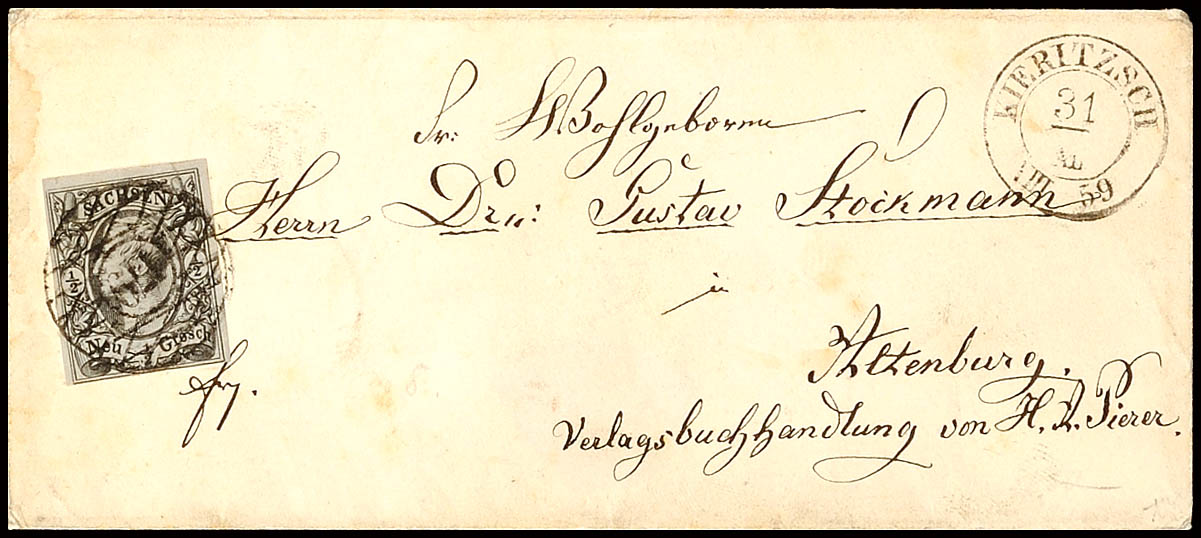 KIERITZSCH
31
AL
III. 59
Sr: Wohlgeboren
Herrn Dr: Gustav Stöckmann
in
Altenburg.
Verlagsbuchhandlung von H. A. Pierer.
SACHSEN
½ ½
Neu ½ Grosch